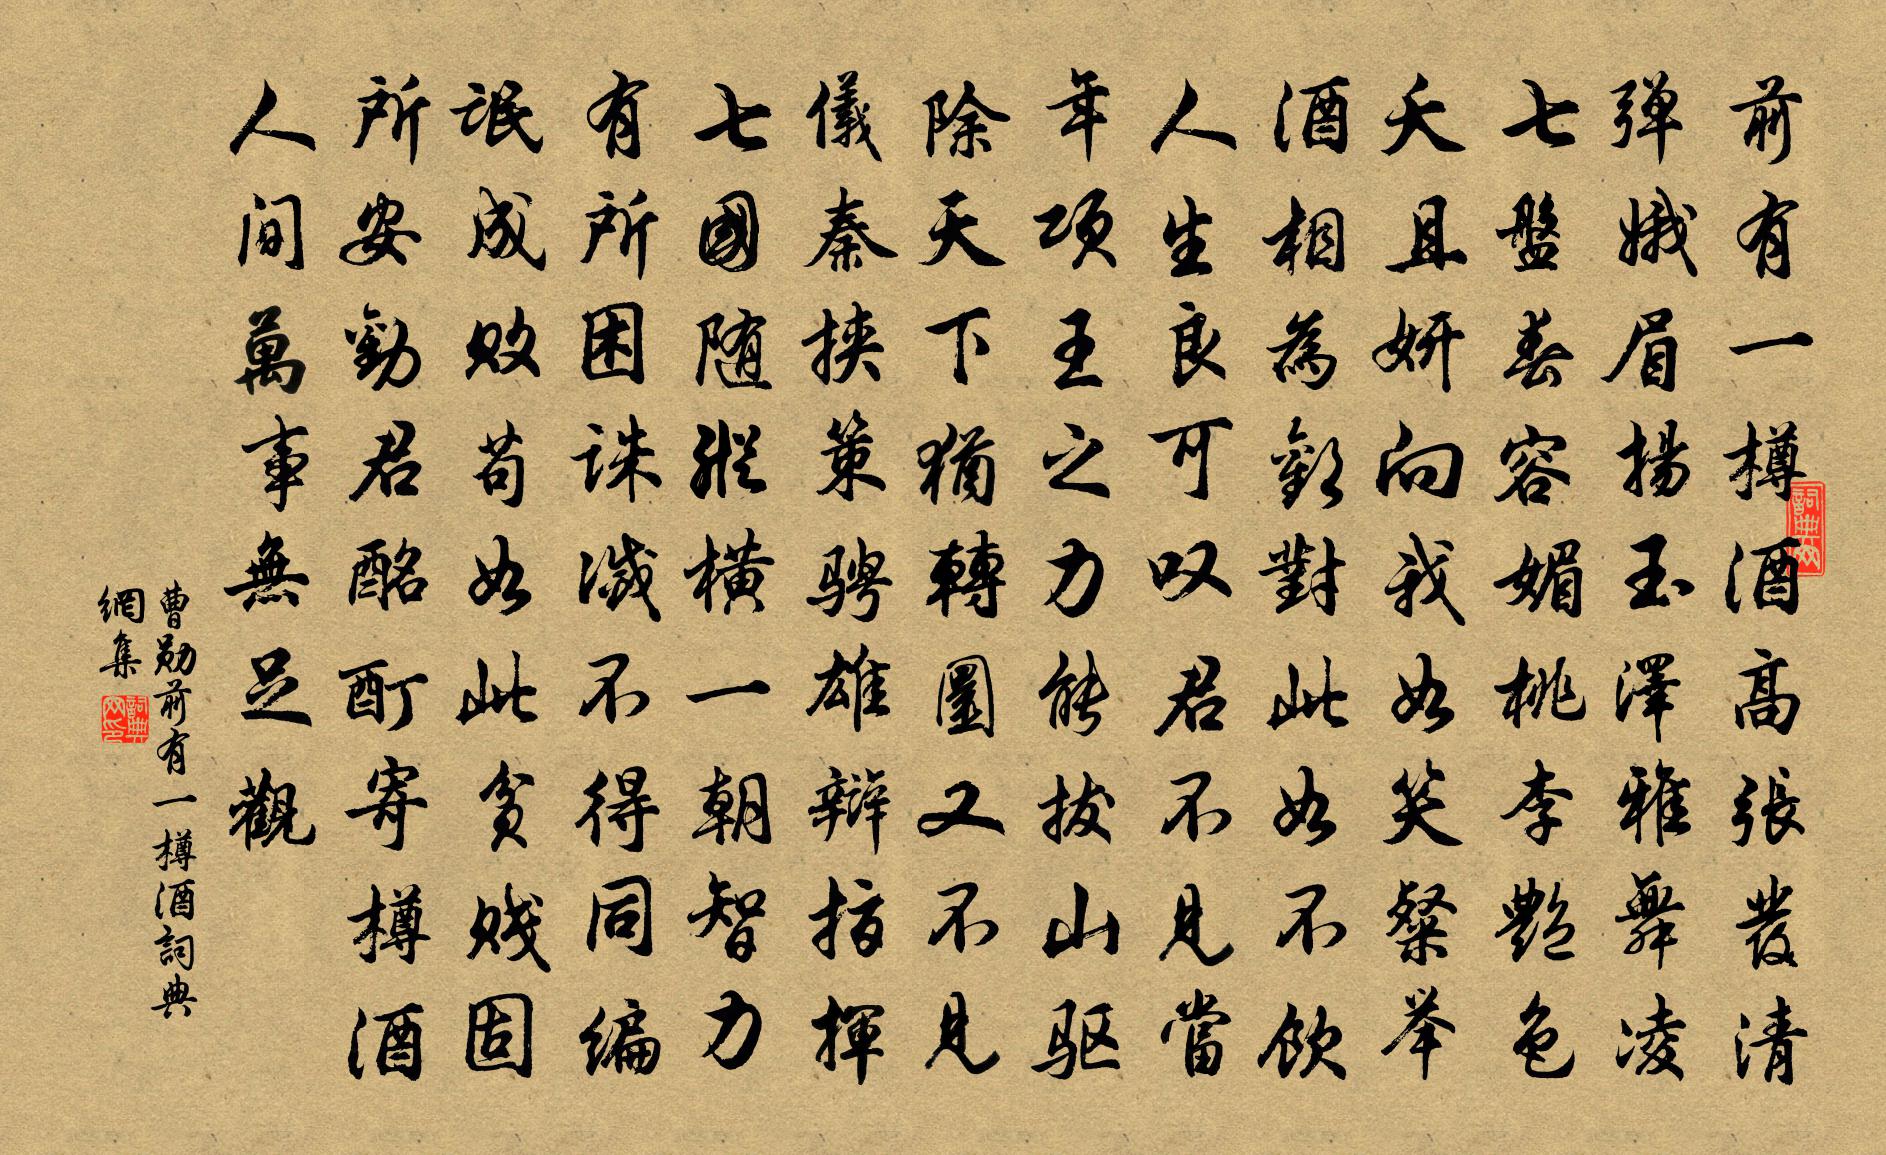 前有一樽酒高張發清
弹娥眉揚玉澤雅舞凌
七盤春容媚桃李艷色
夭且妍向我如笑粲举
酒相為歡對此如不飲
人生良可叹君不見當
年項王之力能拔山驱
除天下猶轉圜又不見
儀秦挟策骋雄辯指揮
七國随縱横一朝智力
有所困誅滅不得同编
氓成败苟如此貧贱固
所安勸君酩酊寄樽酒
人间萬事無足觀
曹勋前有一樽酒詞典
網集
詞典网
詞典网印